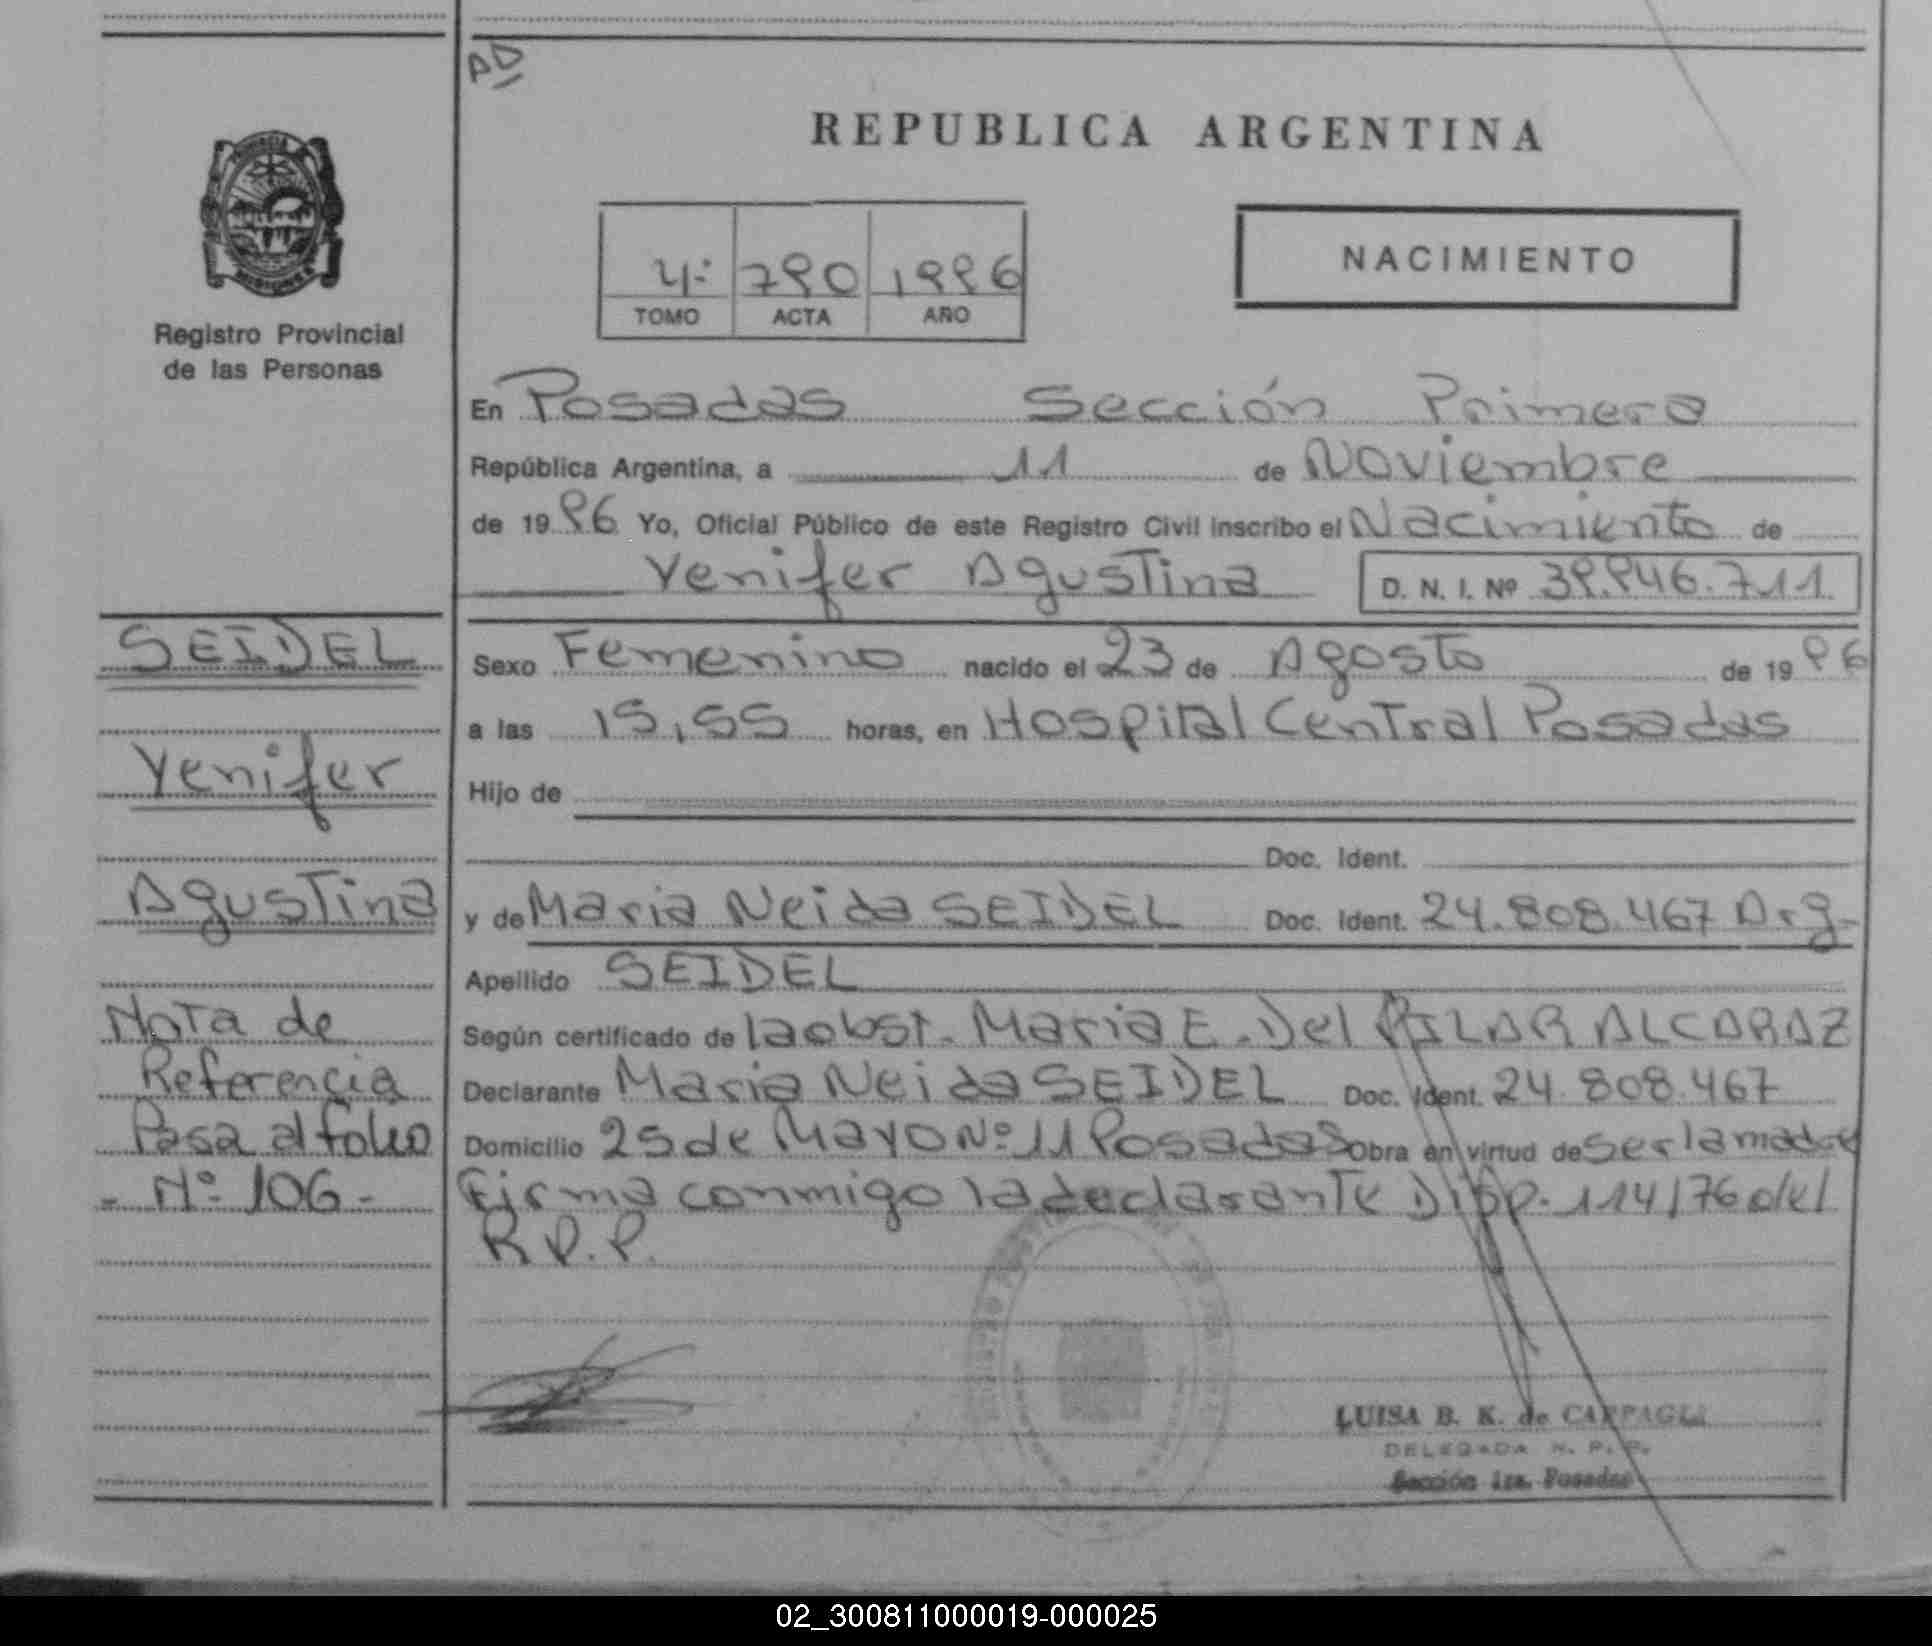 AD
REPUBLICA ARGENTINA
4º 790 1996
TOMO ACTA AÑO
NACIMIENTO
Registro Provincial
de las Personas
En Posadas Sección Primera
República Argentina, a 11 de Noviembre
de 1996 Yo, Oficial Público de este Registro Civil inscribo el Nacimiento de
Yenifer Agustina D. N. I. Nº 39.946.711.
SEIDEL
Yenifer
Agustina
Nota de
Referencia
Pasa al folio
- Nº 106 -
Sexo Femenino nacido el 23 de Agosto de 1996
a las 15,55 horas, en Hospital Central Posadas
Hijo de
Doc. Ident.
y de Maria Neida SEIDEL Doc. Ident. 24.808.467 Arg.
Apellido SEIDEL
Según certificado de la obst. Maria E. Del PILAR ALCARAZ
Declarante Maria Neida SEIDEL Doc. Ident. 24.808.467
Domicilio 25 de Mayo Nº 11 Posadas Obra en virtud de ser la madre
Firma conmigo la declarante Disp. 114/76 del
R.P.P.
LUISA B. K. de
DELEGADA R. P. P.
Sección 1ra. Posadas
02_300811000019-000025